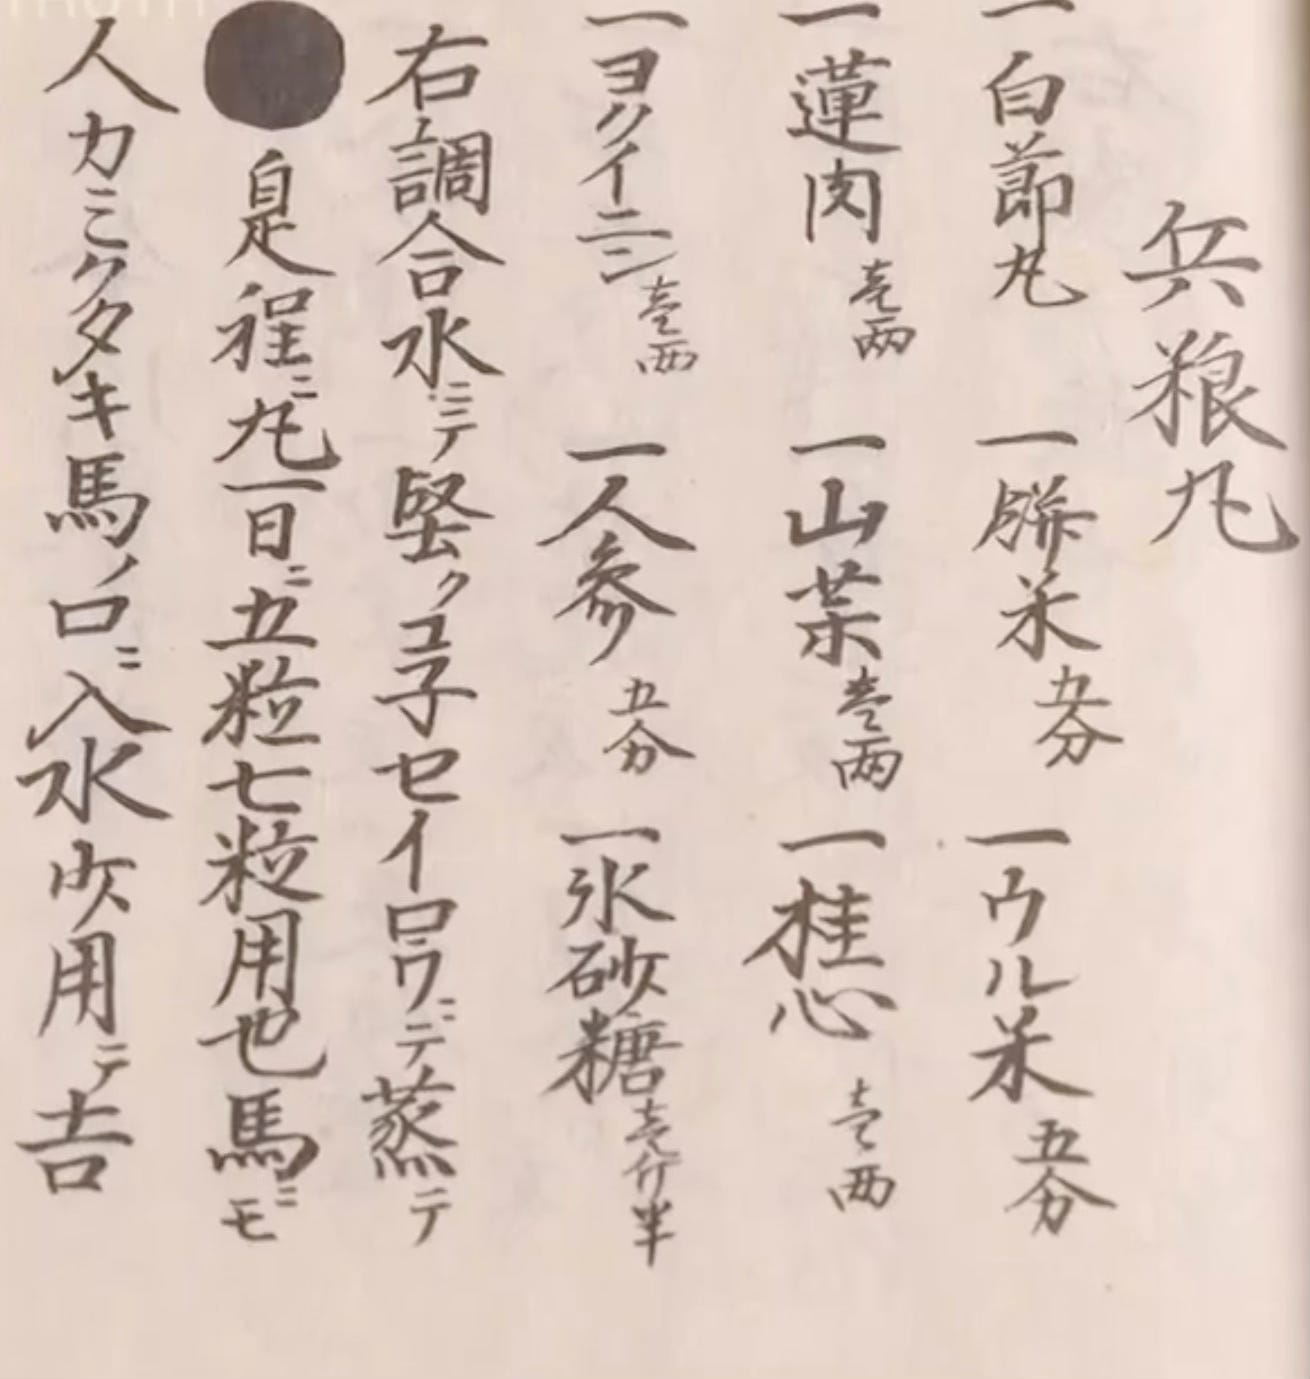 兵粮丸
一白節丸 一餅米 五分 一ウル米 五分
一蓮肉 壱両 一山薬 壱両 一桂心 壱両
一ヨクイニン 壱両 一人参 五分 一氷砂糖 壱斤半
右調合水ミテ堅クユ子セイロウニテ蒸テ
是程ニ丸一日ニ五粒七粒用也馬ニモ
人カミクタキ馬ノ口ニ入水ニ用テ吉